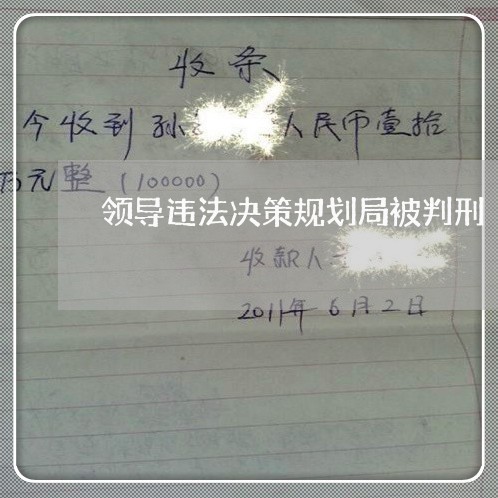 收条
今收到孙 人民币壹拾
万元整（100000）
领导违法决策规划局被判刑
收款人
2011年6月2日